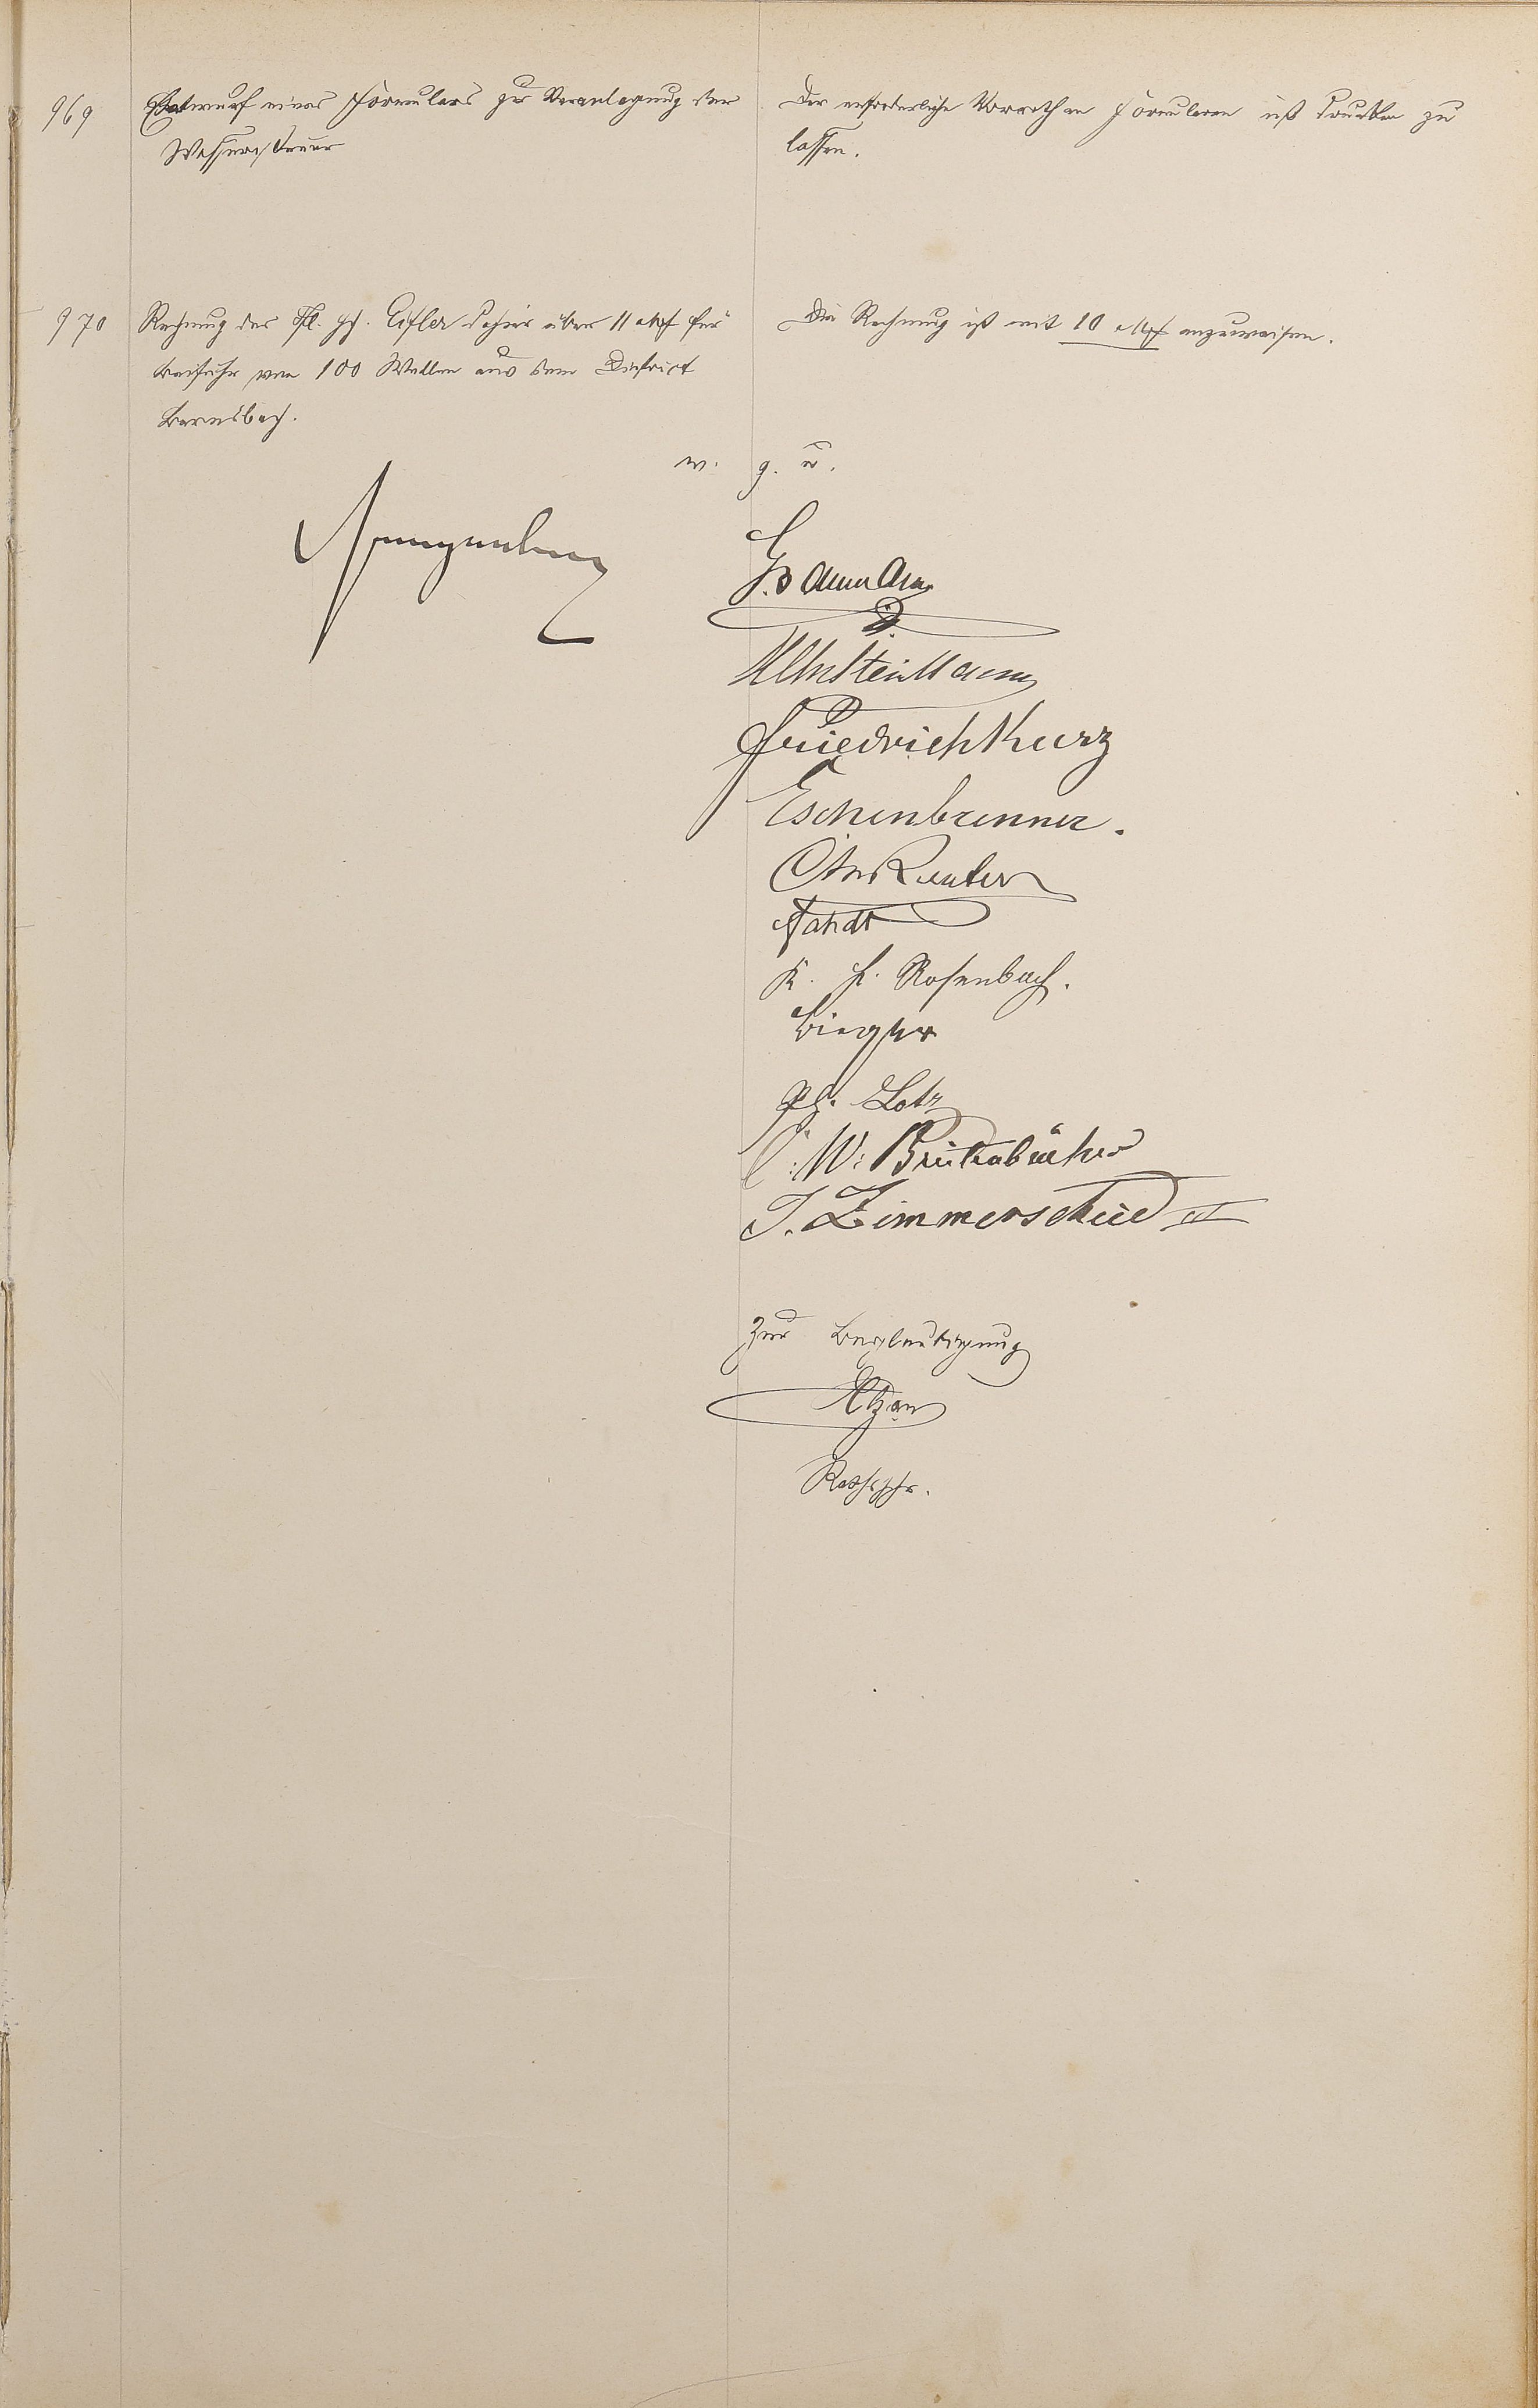 969
Entwurf eines Formulars zur Veranlagung der
Wassersteuer
Der erforderliche Vorrath an Formularen ist drucken zu
lassen.
970
Rechnung des Ph. Eifler dahier über 11 Mk für
Beifuhr von 100 Wellen aus dem District
Bernsbach.
Die Rechnung ist mit 10 Mk anzuweisen.
w. g. u.
G. Baumann
Friedrich Kurz
Eschenbrenner.
Otto Reuter
Fandt
K. H. Rosenbach.
Bieger
Ph. Lotz
W: Breitenbücher
J. Zimmerscheid II
Zur Beglaubigung
Rathsschr.